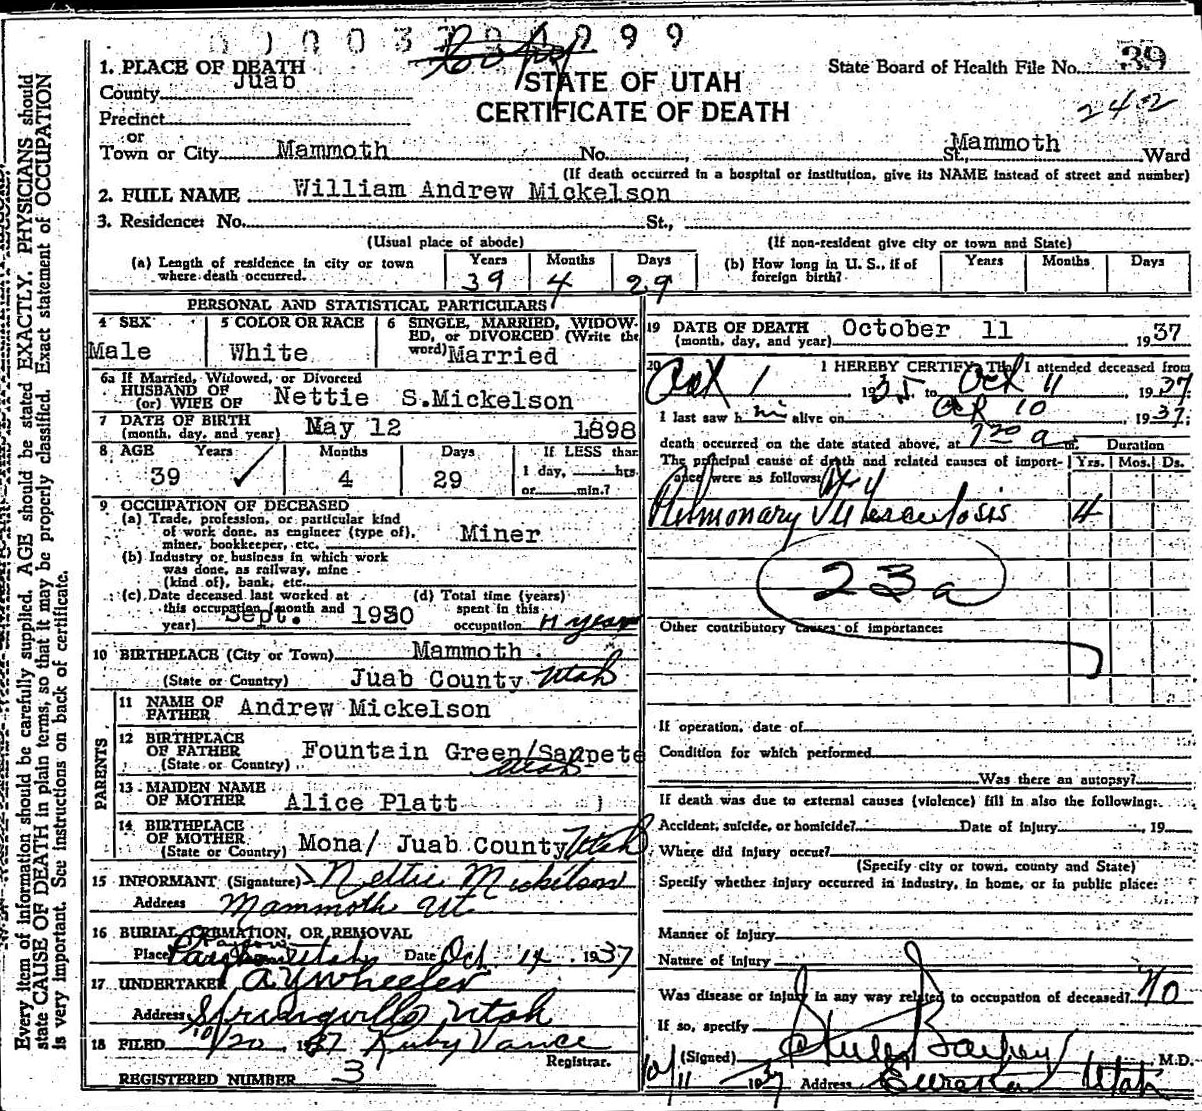 39
1. PLACE OF DEATH
County Juab
STATE OF UTAH
CERTIFICATE OF DEATH
State Board of Health File No. 39
242
Precinct
or
Town or City Mammoth No. St., Mammoth Ward
(If death occurred in a hospital or institution, give its NAME instead of street and number)
2. FULL NAME William Andrew Mickelson
3. Residence: No. St.,
(Usual place of abode) (If non-resident give city or town and State)
(a) Length of residence in city or town where death occurred. Years 39 Months 4 Days 29
(b) How long in U. S., if of foreign birth? Years Months Days
PERSONAL AND STATISTICAL PARTICULARS
4 SEX Male
5 COLOR OR RACE White
6 SINGLE, MARRIED, WIDOWED, or DIVORCED (Write the word) Married
6a If Married, Widowed, or Divorced
HUSBAND OF
(or) WIFE OF Nettie S.Mickelson
7 DATE OF BIRTH
(month, day, and year) May 12 1898
8 AGE Years 39 Months 4 Days 29 If LESS than
1 day, hrs.
or min.?
9 OCCUPATION OF DECEASED
(a) Trade, profession, or particular kind
of work done, as engineer (type of),
miner, bookkeeper, etc. Miner
(b) Industry or business in which work
was done, as railway, mine
(kind of), bank, etc.
(c) Date deceased last worked at
this occupation (month and
year) Sept. 1930
(d) Total time (years)
spent in this
occupation 11 years
10 BIRTHPLACE (City or Town) Mammoth
(State or Country) Juab County Utah
PARENTS
11 NAME OF
FATHER Andrew Mickelson
12 BIRTHPLACE
OF FATHER
(State or Country) Fountain Green/Sanpete
Utah
13 MAIDEN NAME
OF MOTHER Alice Platt
14 BIRTHPLACE
OF MOTHER
(State or Country) Mona/ Juab County Utah
15 INFORMANT (Signature) Nettie Mickelson
Address Mammoth Ut.
16 BURIAL, CREMATION, OR REMOVAL
Place Payson Utah Date Oct 14, 1937
17 UNDERTAKER A Y Wheeler
Address Springville Utah
18 FILED 10/20 1937 Ruby Vance
Registrar.
REGISTERED NUMBER 3
19 DATE OF DEATH October 11 1937
(month, day, and year)
20 I HEREBY CERTIFY, That I attended deceased from
Oct 1 1935, to Oct 11, 1937
I last saw him alive on Oct 10, 1937
death occurred on the date stated above, at 7 20 a m. Duration
The principal cause of death and related causes of importance were as follows: Yrs. Mos. Ds.
Pulmonary Tuberculosis 4
23a
Other contributory causes of importance:
If operation, date of
Condition for which performed
Was there an autopsy?
If death was due to external causes (violence) fill in also the following:
Accident, suicide, or homicide? Date of injury , 19
Where did injury occur?
(Specify city or town, county and State)
Specify whether injury occurred in industry, in home, or in public place:
Manner of injury
Nature of injury
Was disease or injury in any way related to occupation of deceased? No
If so, specify
(Signed) Steele Bailey M.D.
10/11 1937 Address Eureka Utah
Every item of information should be carefully supplied. AGE should be stated EXACTLY. PHYSICIANS should
state CAUSE OF DEATH in plain terms, so that it may be properly classified. Exact statement of OCCUPATION
is very important. See instructions on back of certificate.